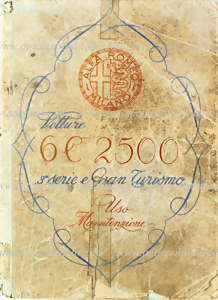 ALFA ROMEO
MILANO
Vetture
6C 2500
3ª serie e Gran Turismo
Uso
Manutenzione